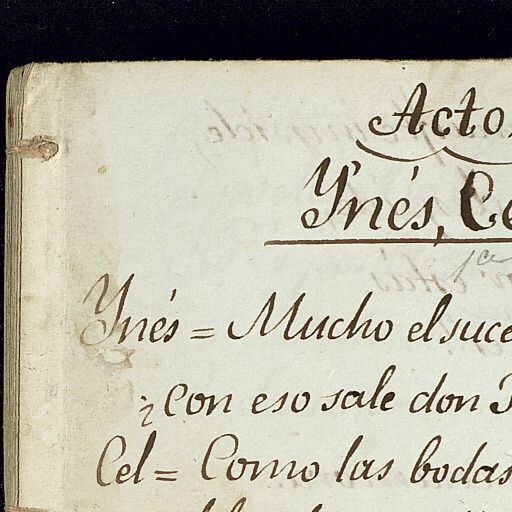 Acto
Ynés, Ce
1ª
Ynés = Mucho el suce
¿Con eso sale don
Cel = Como las bodas